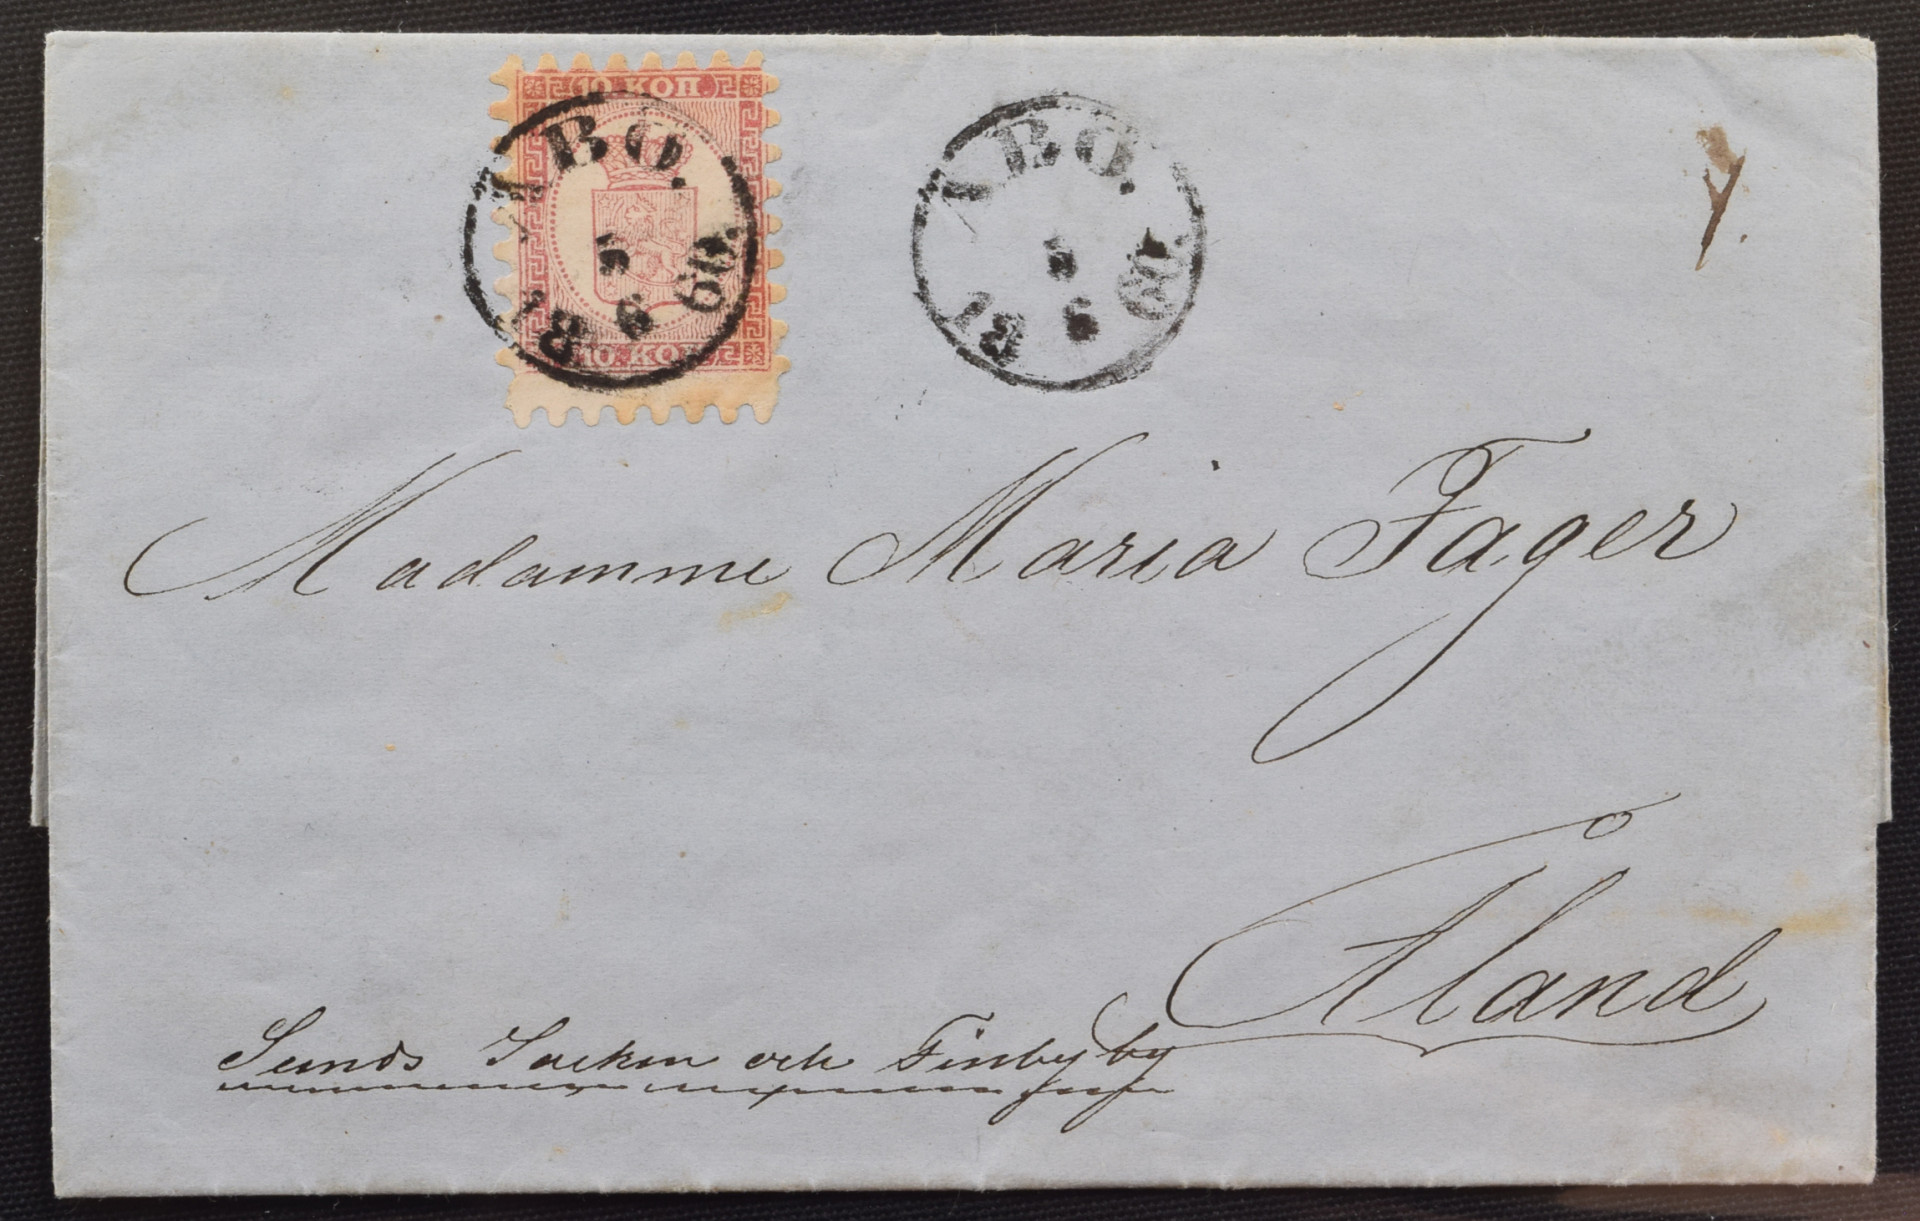 10 КОП.
ABO.
5
6
18 60.
10. КОП.
ABO.
5
6
18 60.
Madamme Maria Fager
Åland
Sunds Socken och Finbyby